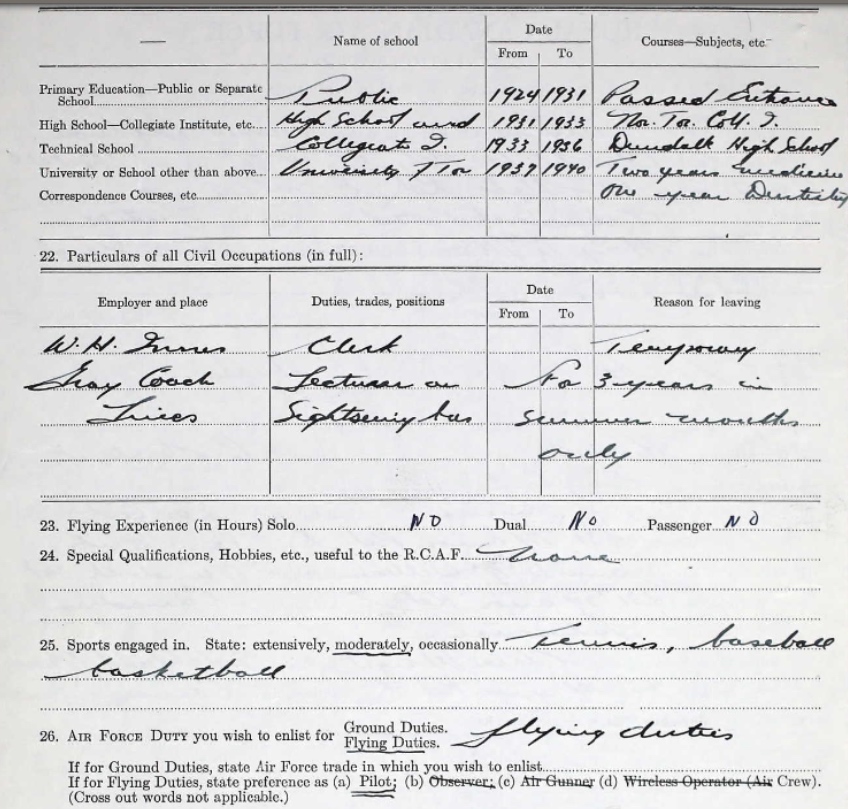 — Name of school Date From To Courses—Subjects, etc.
Primary Education—Public or Separate
School Public 1924 1931 Passed Entrance
High School—Collegiate Institute, etc. High School and 1931 1933 Nor. Tor. Coll. I.
Technical School Collegiat I. 1933 1936 Dundalk High School
University or School other than above University Tor 1937 1940 Two years medicine
Correspondence Courses, etc. one year Dentistry
22. Particulars of all Civil Occupations (in full):
Employer and place Duties, trades, positions Date From To Reason for leaving
W. H. Clerk Temporary
Gray Coach Lecturer on For 3 years in
Lines Sightseeing bus summer months
only
23. Flying Experience (in Hours) Solo NO Dual No Passenger NO
24. Special Qualifications, Hobbies, etc., useful to the R.C.A.F. None
25. Sports engaged in. State: extensively, moderately, occasionally Tennis, baseball
basketball
26. AIR FORCE DUTY you wish to enlist for Ground Duties.
Flying Duties. flying duties
If for Ground Duties, state Air Force trade in which you wish to enlist
If for Flying Duties, state preference as (a) Pilot; (b) Observer; (c) Air Gunner (d) Wireless Operator (Air Crew).
(Cross out words not applicable.)